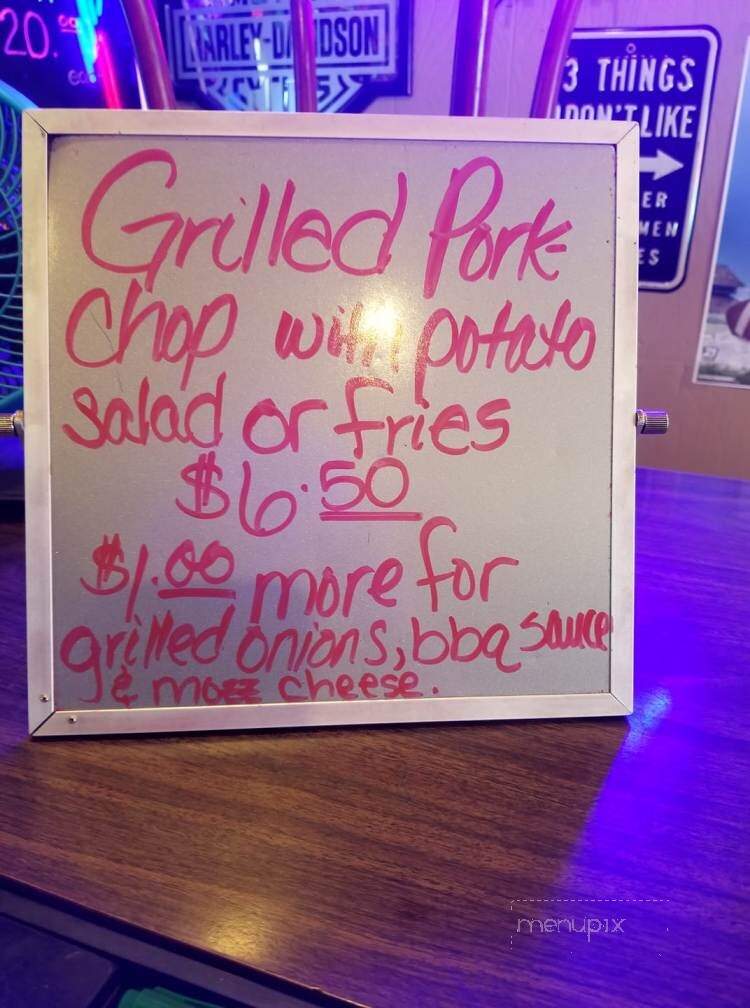 20.
HARLEY-DAVIDSON
3 THINGS
DON'T LIKE
Grilled Pork-
Chop with potato
salad or fries
$6.50
$1.00 more for
grilled onions, bbq sauce
& mozz cheese.
menupix